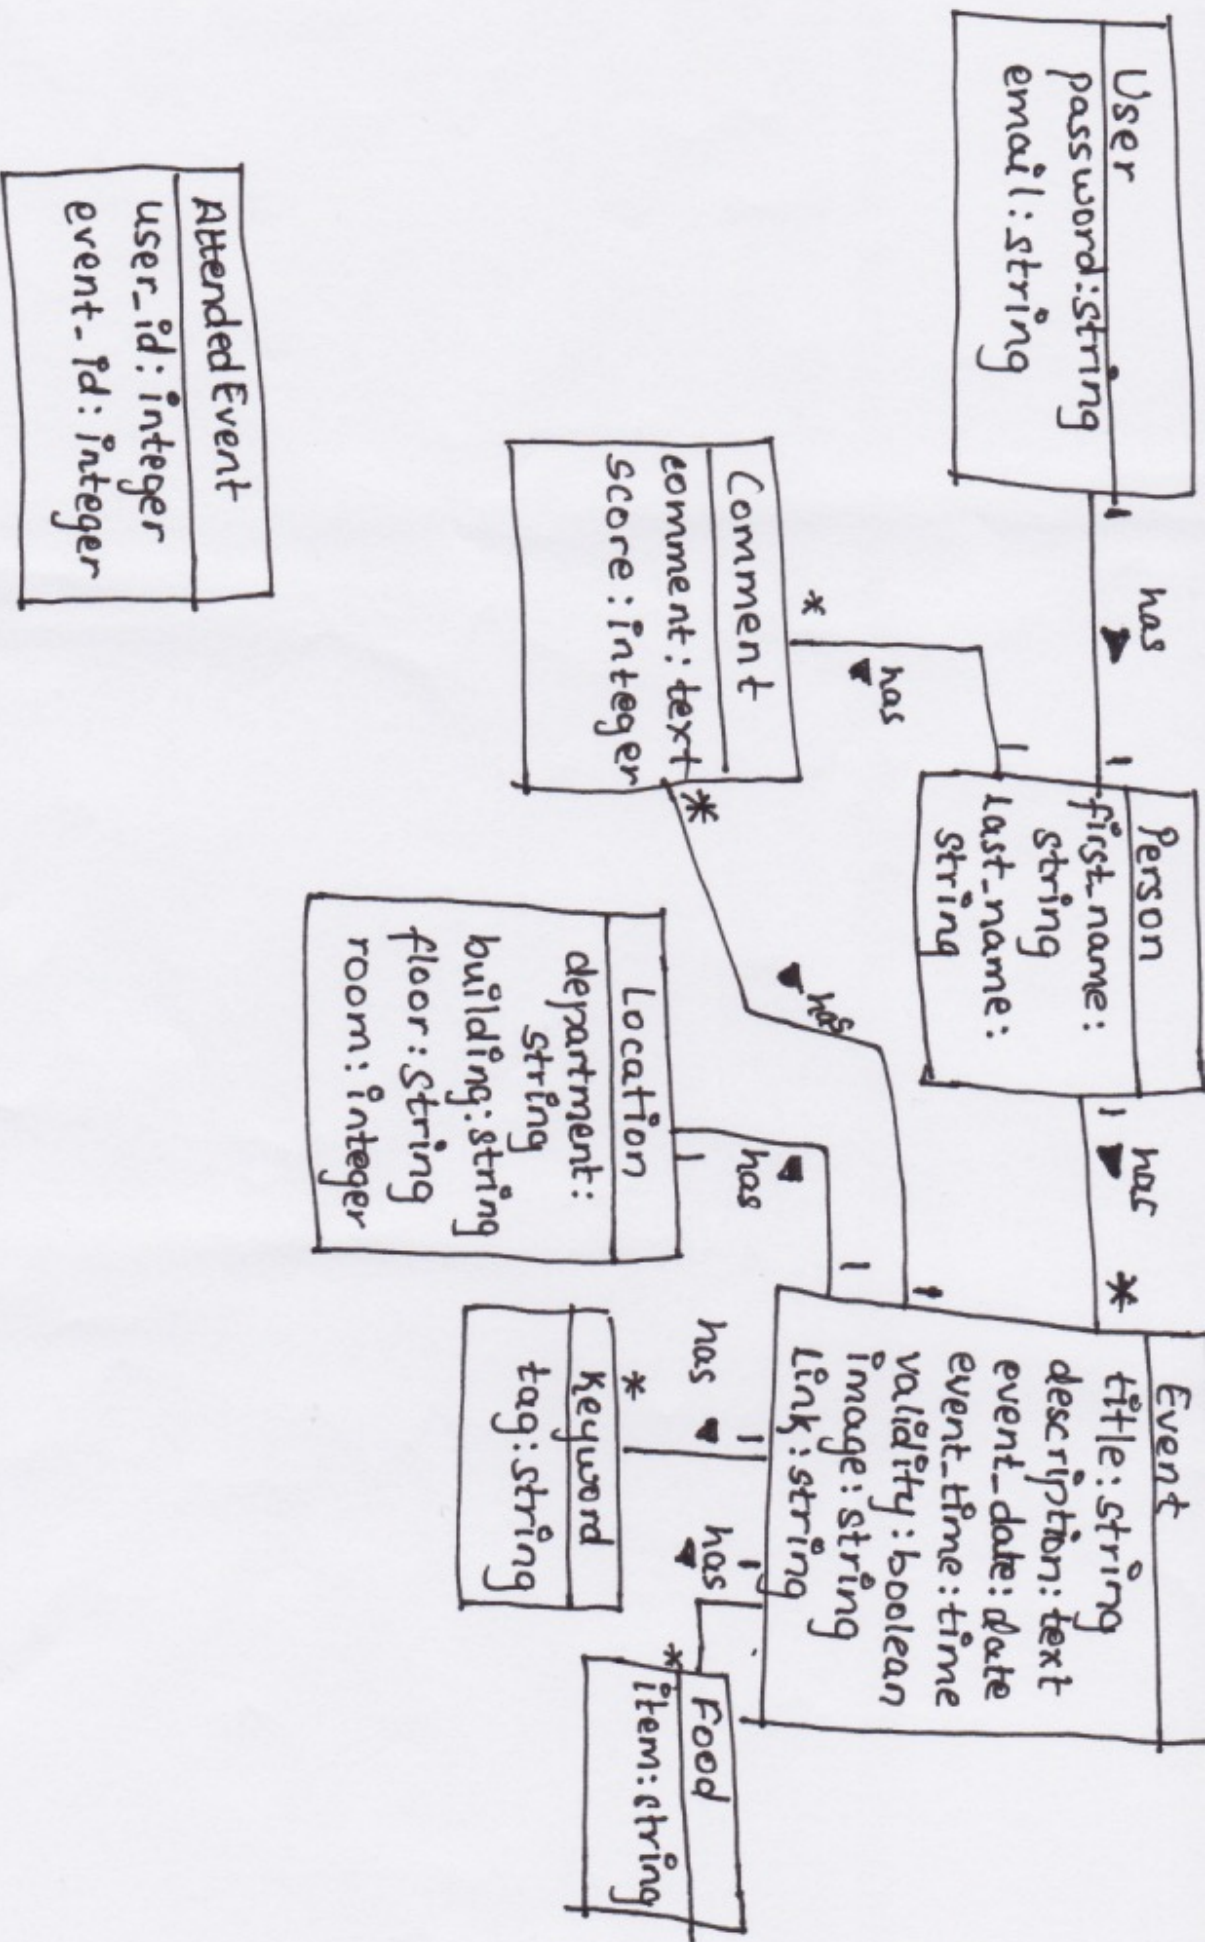 User
password:string
email:string
1
has
1
Person
first_name:
string
last_name:
string
1
has
*
Event
title:string
description:text
event_date:date
event_time:time
validity:boolean
image:string
Link:string
1
has
*
Comment
comment:text
score:integer
*
has
1
Location
department:
string
building:string
floor:string
room:integer
1
has
1
1
has
*
Keyword
tag:string
1
has
*
Food
item:string
AttendedEvent
user_id:integer
event_id:integer